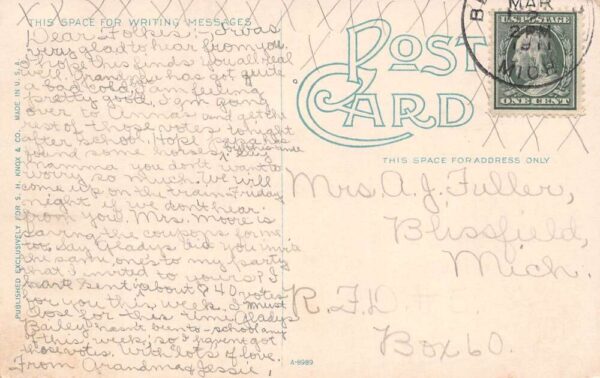 THIS SPACE FOR WRITING MESSAGES
Dear Folkses:- I was
very glad to hear from you.
I hope this finds you all real
well. Grandma has got quite
a bad cold. I am feeling
pretty good. I am going
over to Anna's and get the
rest of those votes to-night
after school. Hope papa has
found some horses by this time
mamma you don't want to
worry so much. We will
come up on the train Friday
night if we don't hear
from you. Mrs. Moore is
saving the coupons for me
too. Say Gladys did you invite
the same ones to my party
that I invited to yours? I
sent about 840 votes
for you this week. I must
close for this time. Gladys
Bailey hasn't been to-school any
this week, so I haven't got
those votes. With lots of love.
From Grandma & Jessie.
PUBLISHED EXCLUSIVELY FOR S. H. KNOX & CO. MADE IN U.S.A.
POST
CARD
THIS SPACE FOR ADDRESS ONLY
MAR
2 PM
MICH
U.S. POSTAGE
ONE CENT
Mrs. A. J. Fuller,
Blissfield,
Mich.
R. F. D.
Box 60.
A-8989